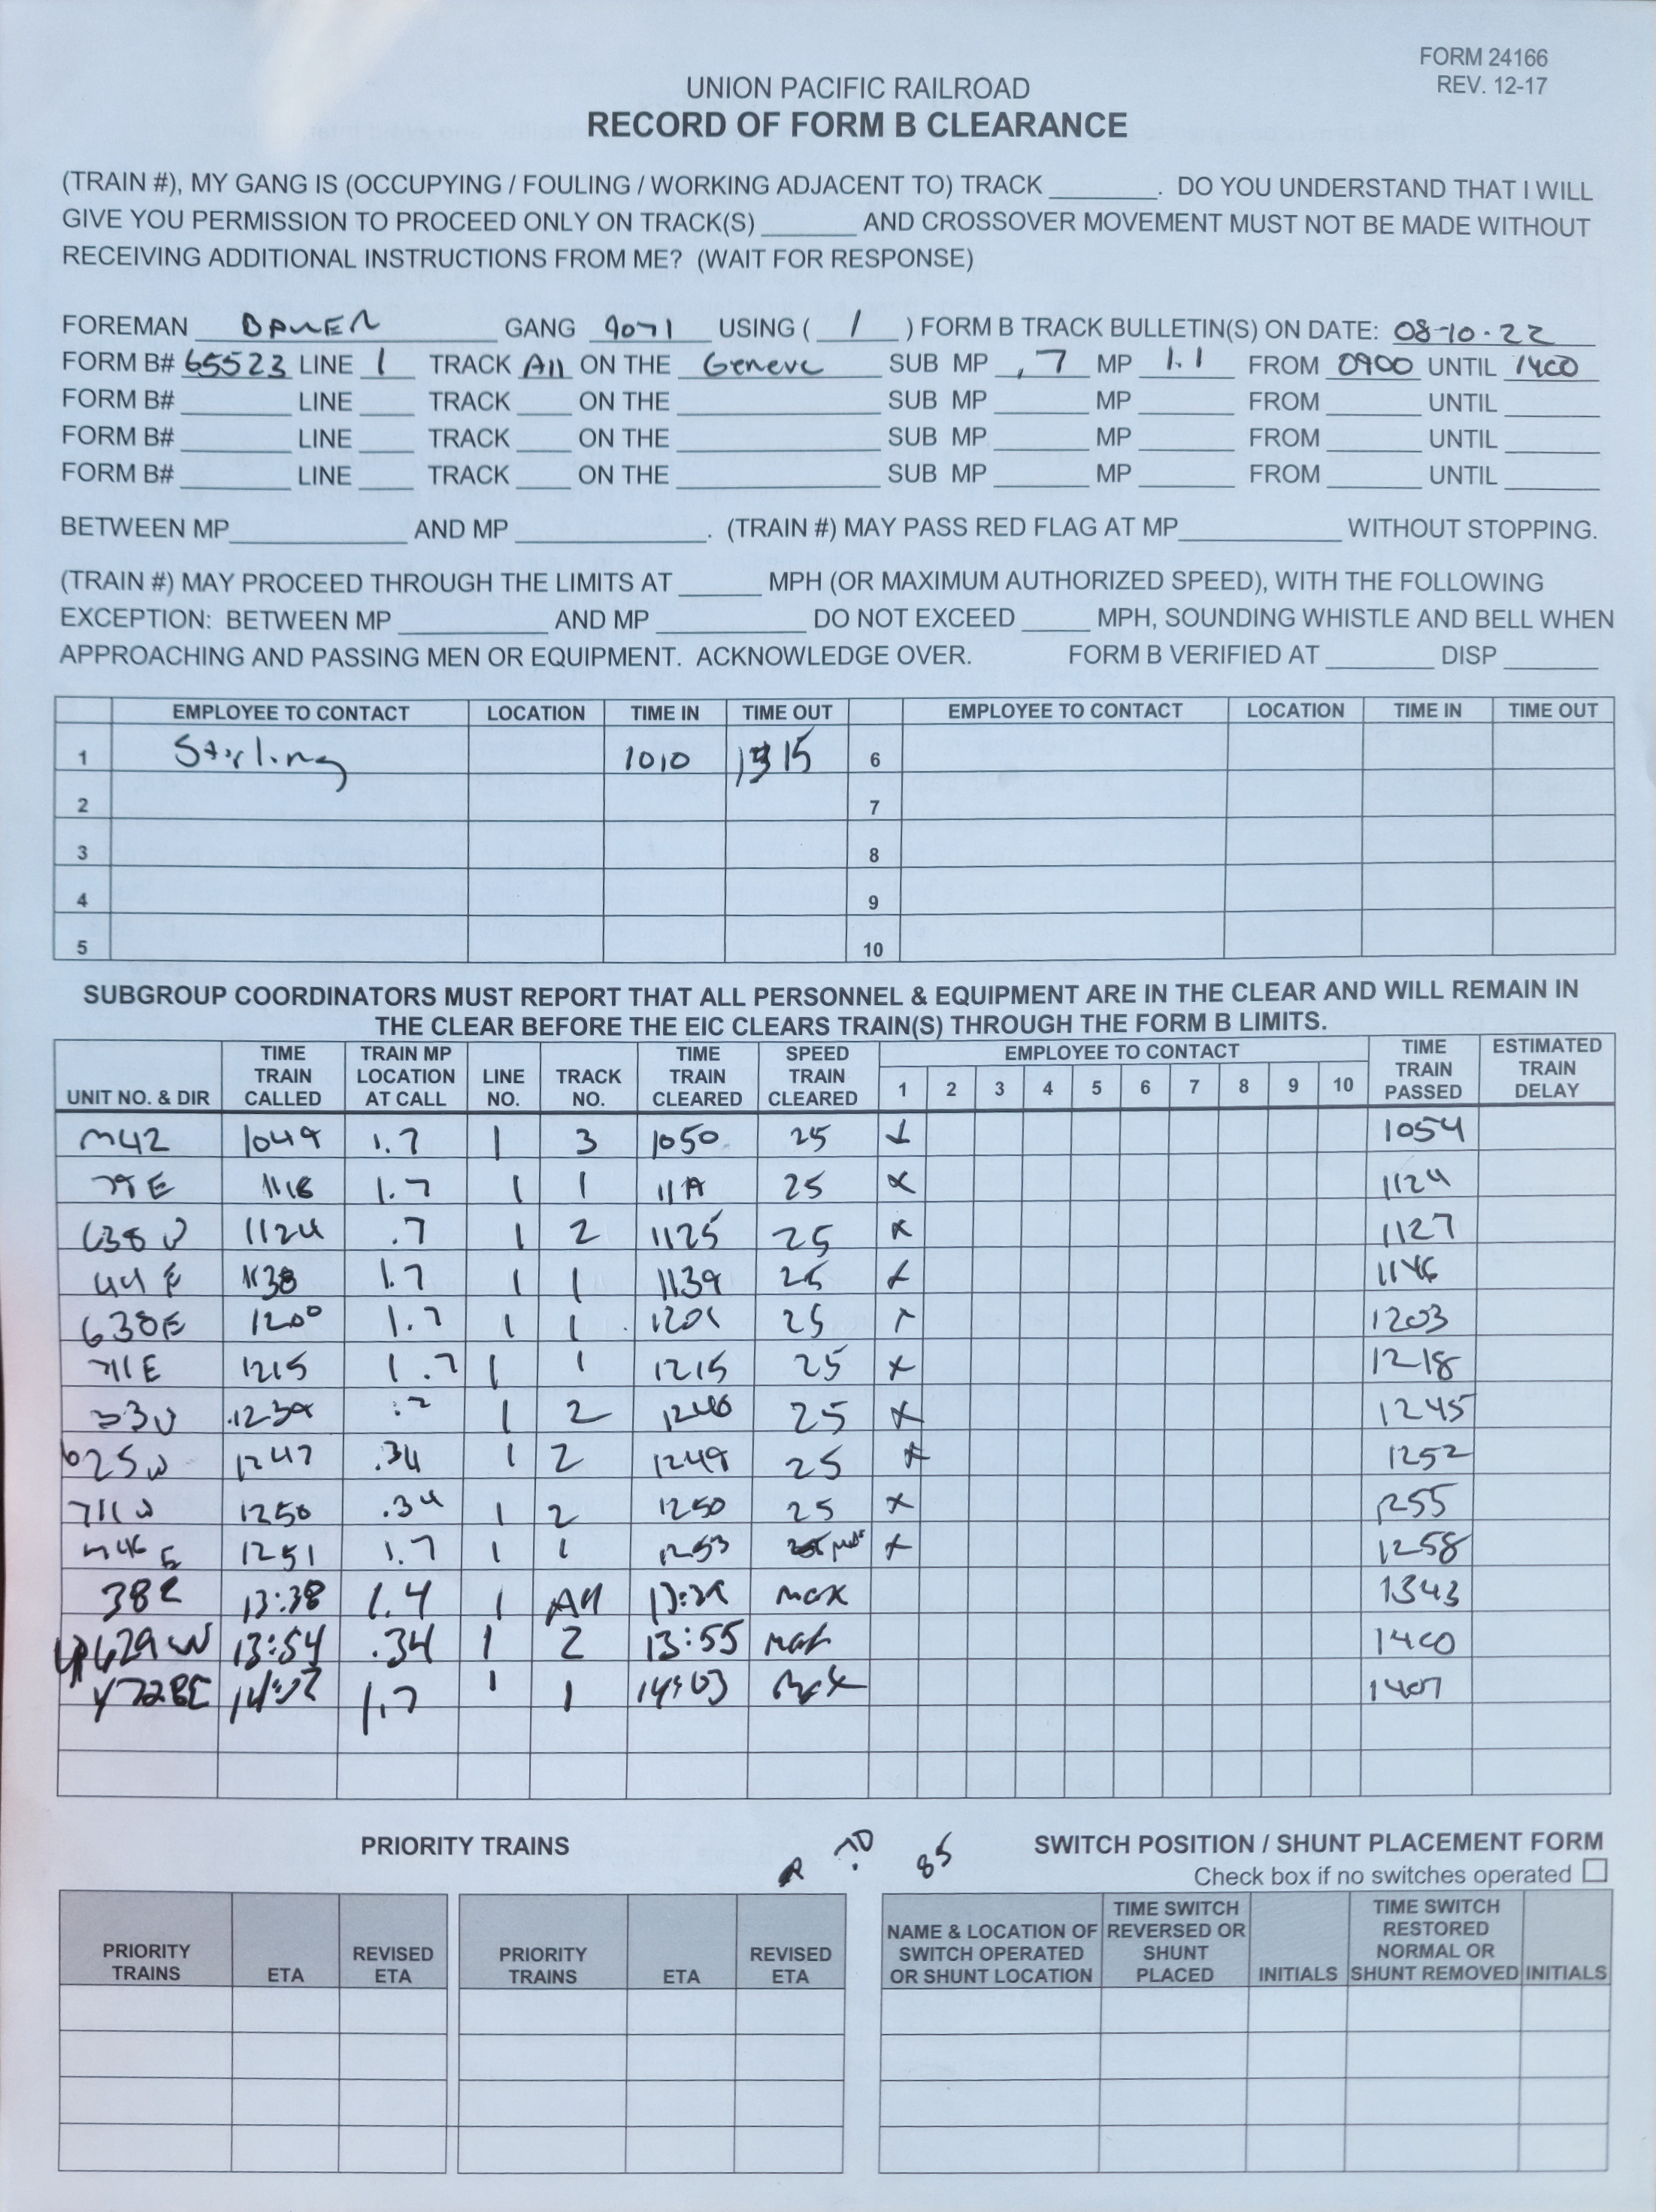 FORM 24166
REV. 12-17
UNION PACIFIC RAILROAD
RECORD OF FORM B CLEARANCE
(TRAIN #), MY GANG IS (OCCUPYING / FOULING / WORKING ADJACENT TO) TRACK ______. DO YOU UNDERSTAND THAT I WILL
GIVE YOU PERMISSION TO PROCEED ONLY ON TRACK(S) ______ AND CROSSOVER MOVEMENT MUST NOT BE MADE WITHOUT
RECEIVING ADDITIONAL INSTRUCTIONS FROM ME? (WAIT FOR RESPONSE)
FOREMAN GANG 9071 USING ( 1 ) FORM B TRACK BULLETIN(S) ON DATE: 08-10-22
FORM B# 65523 LINE 1 TRACK All ON THE Geneve SUB MP .7 MP 1.1 FROM 0900 UNTIL 1400
FORM B# ______ LINE ___ TRACK ___ ON THE ______ SUB MP ______ MP ______ FROM ______ UNTIL ______
FORM B# ______ LINE ___ TRACK ___ ON THE ______ SUB MP ______ MP ______ FROM ______ UNTIL ______
FORM B# ______ LINE ___ TRACK ___ ON THE ______ SUB MP ______ MP ______ FROM ______ UNTIL ______
BETWEEN MP ______ AND MP ______. (TRAIN #) MAY PASS RED FLAG AT MP ______ WITHOUT STOPPING.
(TRAIN #) MAY PROCEED THROUGH THE LIMITS AT ______ MPH (OR MAXIMUM AUTHORIZED SPEED), WITH THE FOLLOWING
EXCEPTION: BETWEEN MP ______ AND MP ______ DO NOT EXCEED ____ MPH, SOUNDING WHISTLE AND BELL WHEN
APPROACHING AND PASSING MEN OR EQUIPMENT. ACKNOWLEDGE OVER. FORM B VERIFIED AT ______ DISP ______
EMPLOYEE TO CONTACT LOCATION TIME IN TIME OUT EMPLOYEE TO CONTACT LOCATION TIME IN TIME OUT
1 Starling 1010 1315 6
2 7
3 8
4 9
5 10
SUBGROUP COORDINATORS MUST REPORT THAT ALL PERSONNEL & EQUIPMENT ARE IN THE CLEAR AND WILL REMAIN IN
THE CLEAR BEFORE THE EIC CLEARS TRAIN(S) THROUGH THE FORM B LIMITS.
UNIT NO. & DIR TIME TRAIN CALLED TRAIN MP LOCATION AT CALL LINE NO. TRACK NO. TIME TRAIN CLEARED SPEED TRAIN CLEARED EMPLOYEE TO CONTACT 1 2 3 4 5 6 7 8 9 10 TIME TRAIN PASSED ESTIMATED TRAIN DELAY
M42 1049 1.7 1 3 1050 25 1054
1118 1.7 1 1 1119 25 x 1124
638 W 1124 .7 1 2 1125 25 x 1127
44 E 1138 1.7 1 1 1139 25 x 1146
638E 1200 1.7 1 1 1201 25 1203
711E 1215 1.7 1 1 1215 25 x 1218
33W 1239 1 2 1240 25 x 1245
625W 1247 .34 1 2 1249 25 x 1252
711W 1250 .34 1 2 1250 25 x 1255
1251 1.7 1 1 1253 x 1258
38E 13:38 1.4 1 All 13:39 max 1343
UP629 W 13:54 .34 1 2 13:55 max 1400
1.7 1 1 14:03 max 1407
PRIORITY TRAINS
85
SWITCH POSITION / SHUNT PLACEMENT FORM
Check box if no switches operated
PRIORITY TRAINS ETA REVISED ETA PRIORITY TRAINS ETA REVISED ETA
NAME & LOCATION OF SWITCH OPERATED OR SHUNT LOCATION TIME SWITCH REVERSED OR SHUNT PLACED INITIALS TIME SWITCH RESTORED NORMAL OR SHUNT REMOVED INITIALS